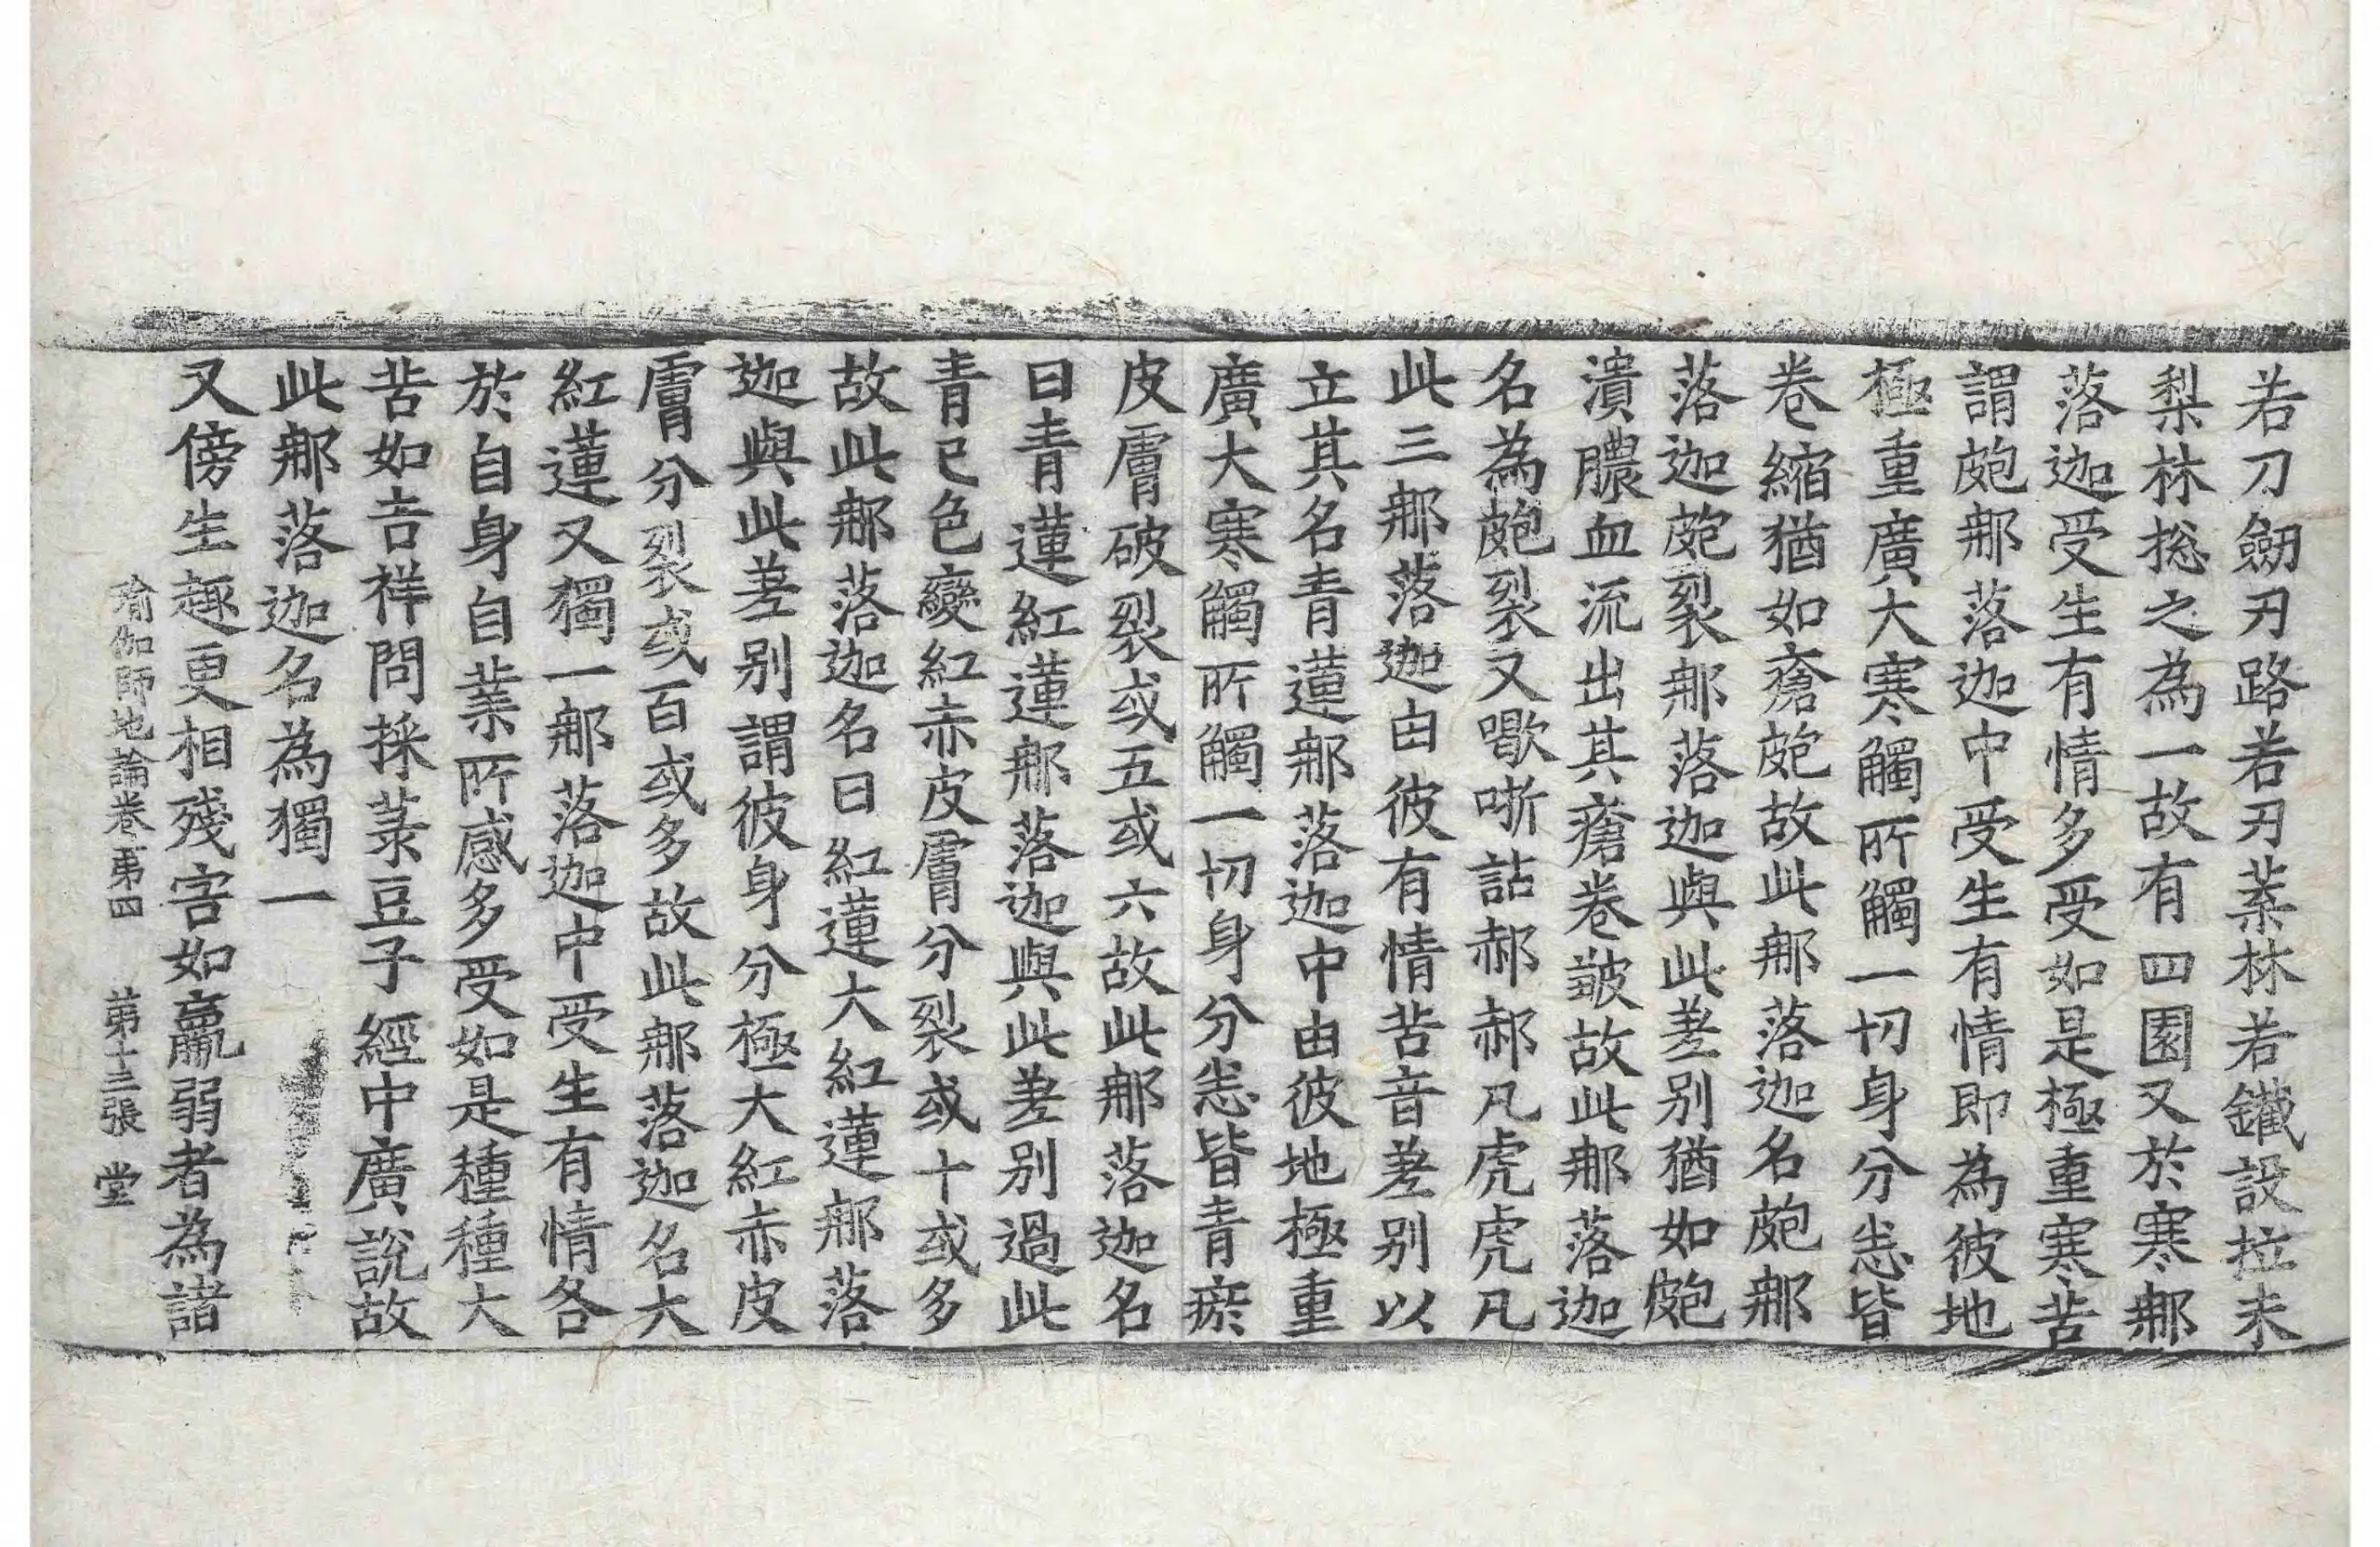 若刀劒刃路若刃葉林若鐵設拉末
梨林捴之為一故有四園又於寒那
落迦受生有情多受如是極重寒苦
謂皰那落迦中受生有情即為彼地
極重廣大寒觸所觸一切身分悉皆
卷縮猶如瘡皰故此那落迦名皰那
落迦皰裂那落迦與此差別猶如皰
潰膿血流出其瘡卷皺故此那落迦
名為皰裂又嚱哳詀郝郝凡虎虎凡
此三那落迦由彼有情苦音差別以
立其名青蓮那落迦中由彼地極重
廣大寒觸所觸一切身分悉皆青瘀
皮膚破裂或五或六故此那落迦名
曰青蓮紅蓮那落迦與此差別過此
青已色變紅赤皮膚分裂或十或多
故此那落迦名曰紅蓮大紅蓮那落
迦與此差別謂彼身分極大紅赤皮
膚分裂或百或多故此那落迦名大
紅蓮又獨一那落迦中受生有情各
於自身自業所感多受如是種種大
苦如吉祥問採菉豆子經中廣說故
此那落迦名為獨一
又傍生趣更相殘害如羸弱者為諸
瑜伽師地論卷第四 第十三張 堂